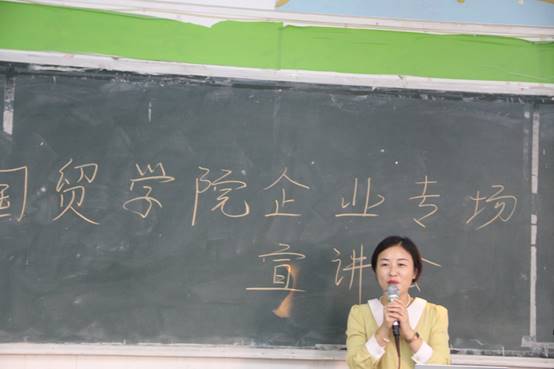 国贸学院企业专场
宣讲